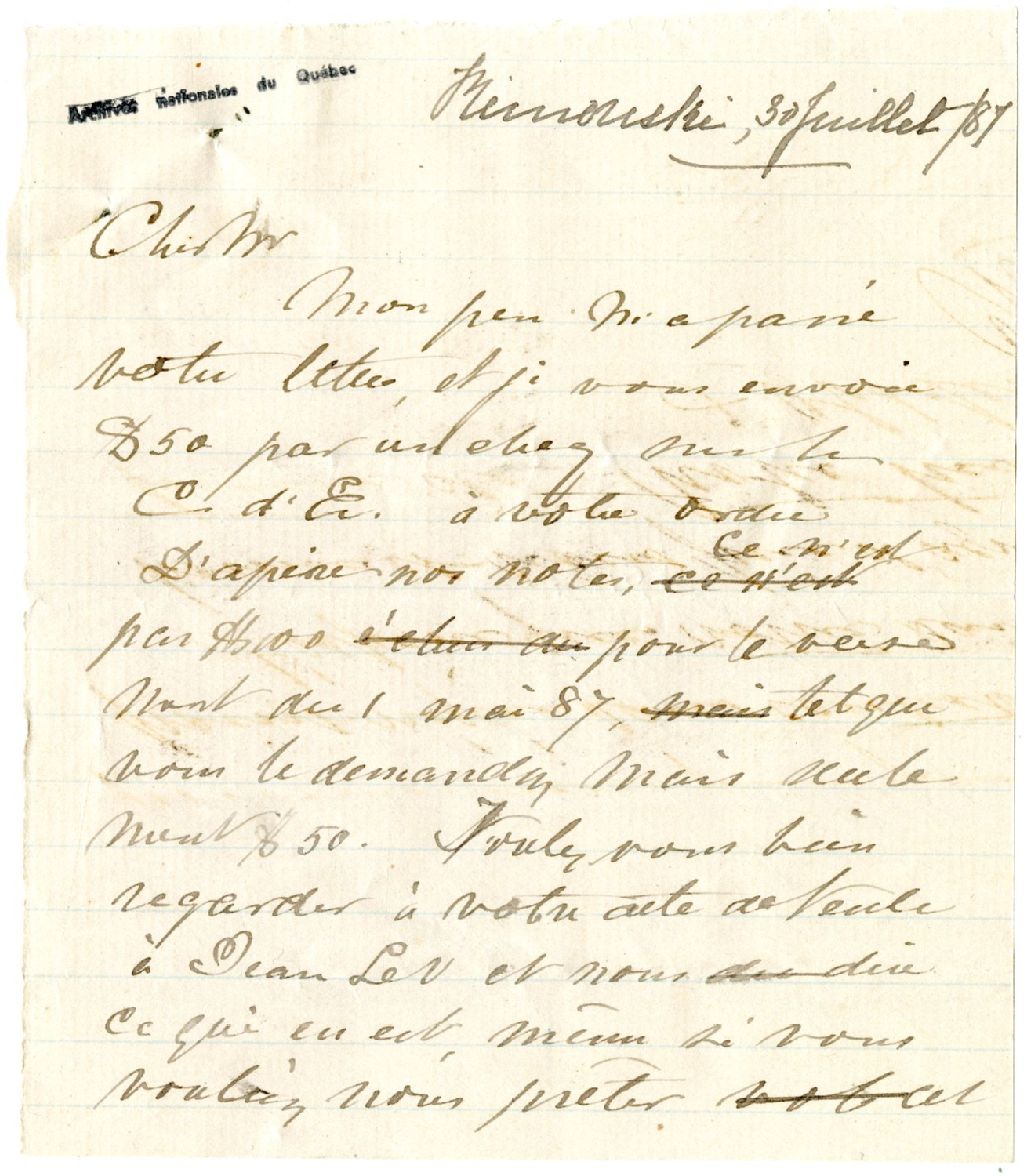 Archives nationales du Québec
Rimouski, 30 Juillet /87
Cher Mr
Mon père m'a passé
votre lettre, et je vous envoie
$50 par un cheq sur la
C. d'Ec. à votre ordre
D'après nos notes, ce n'est ce n'est
pas $100 échus au pour le verse
ment du 1 mai 87, mais tel que
vous le demandez, mais seule
ment $50. Voulez vous bien
regarder à votre acte de Vente
à Jean LeV et nous dire
ce qui en est, même si vous
vouliez nous prêter cet